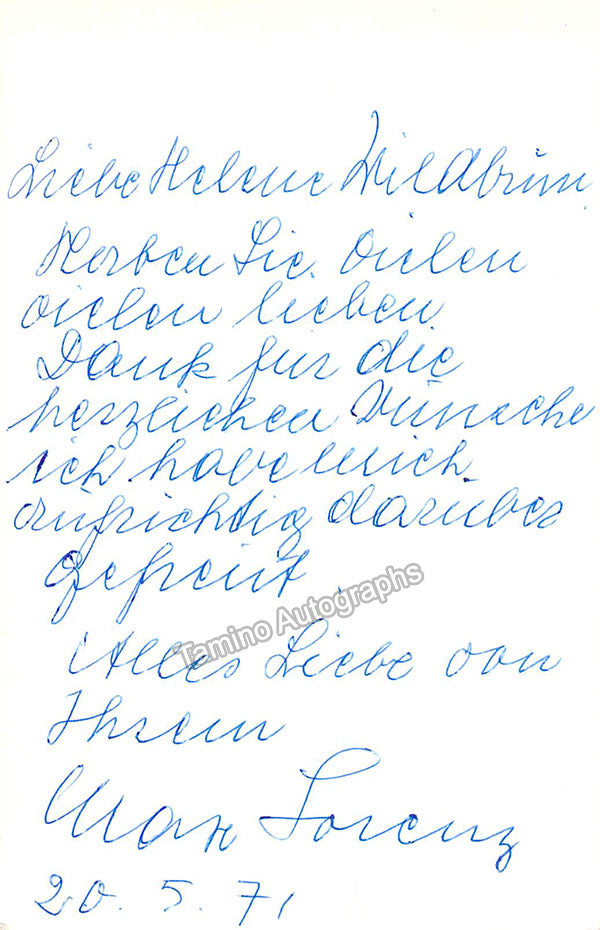 Liebe Helene Wildbrunn
Haben Sie vielen
vielen lieben
Dank für die
herzlichen Wünsche
ich habe mich
aufrichtig darüber
gefreut.
Tamino Autographs
Alles Liebe von
Ihrem
Max Lorenz
20. 5. 71